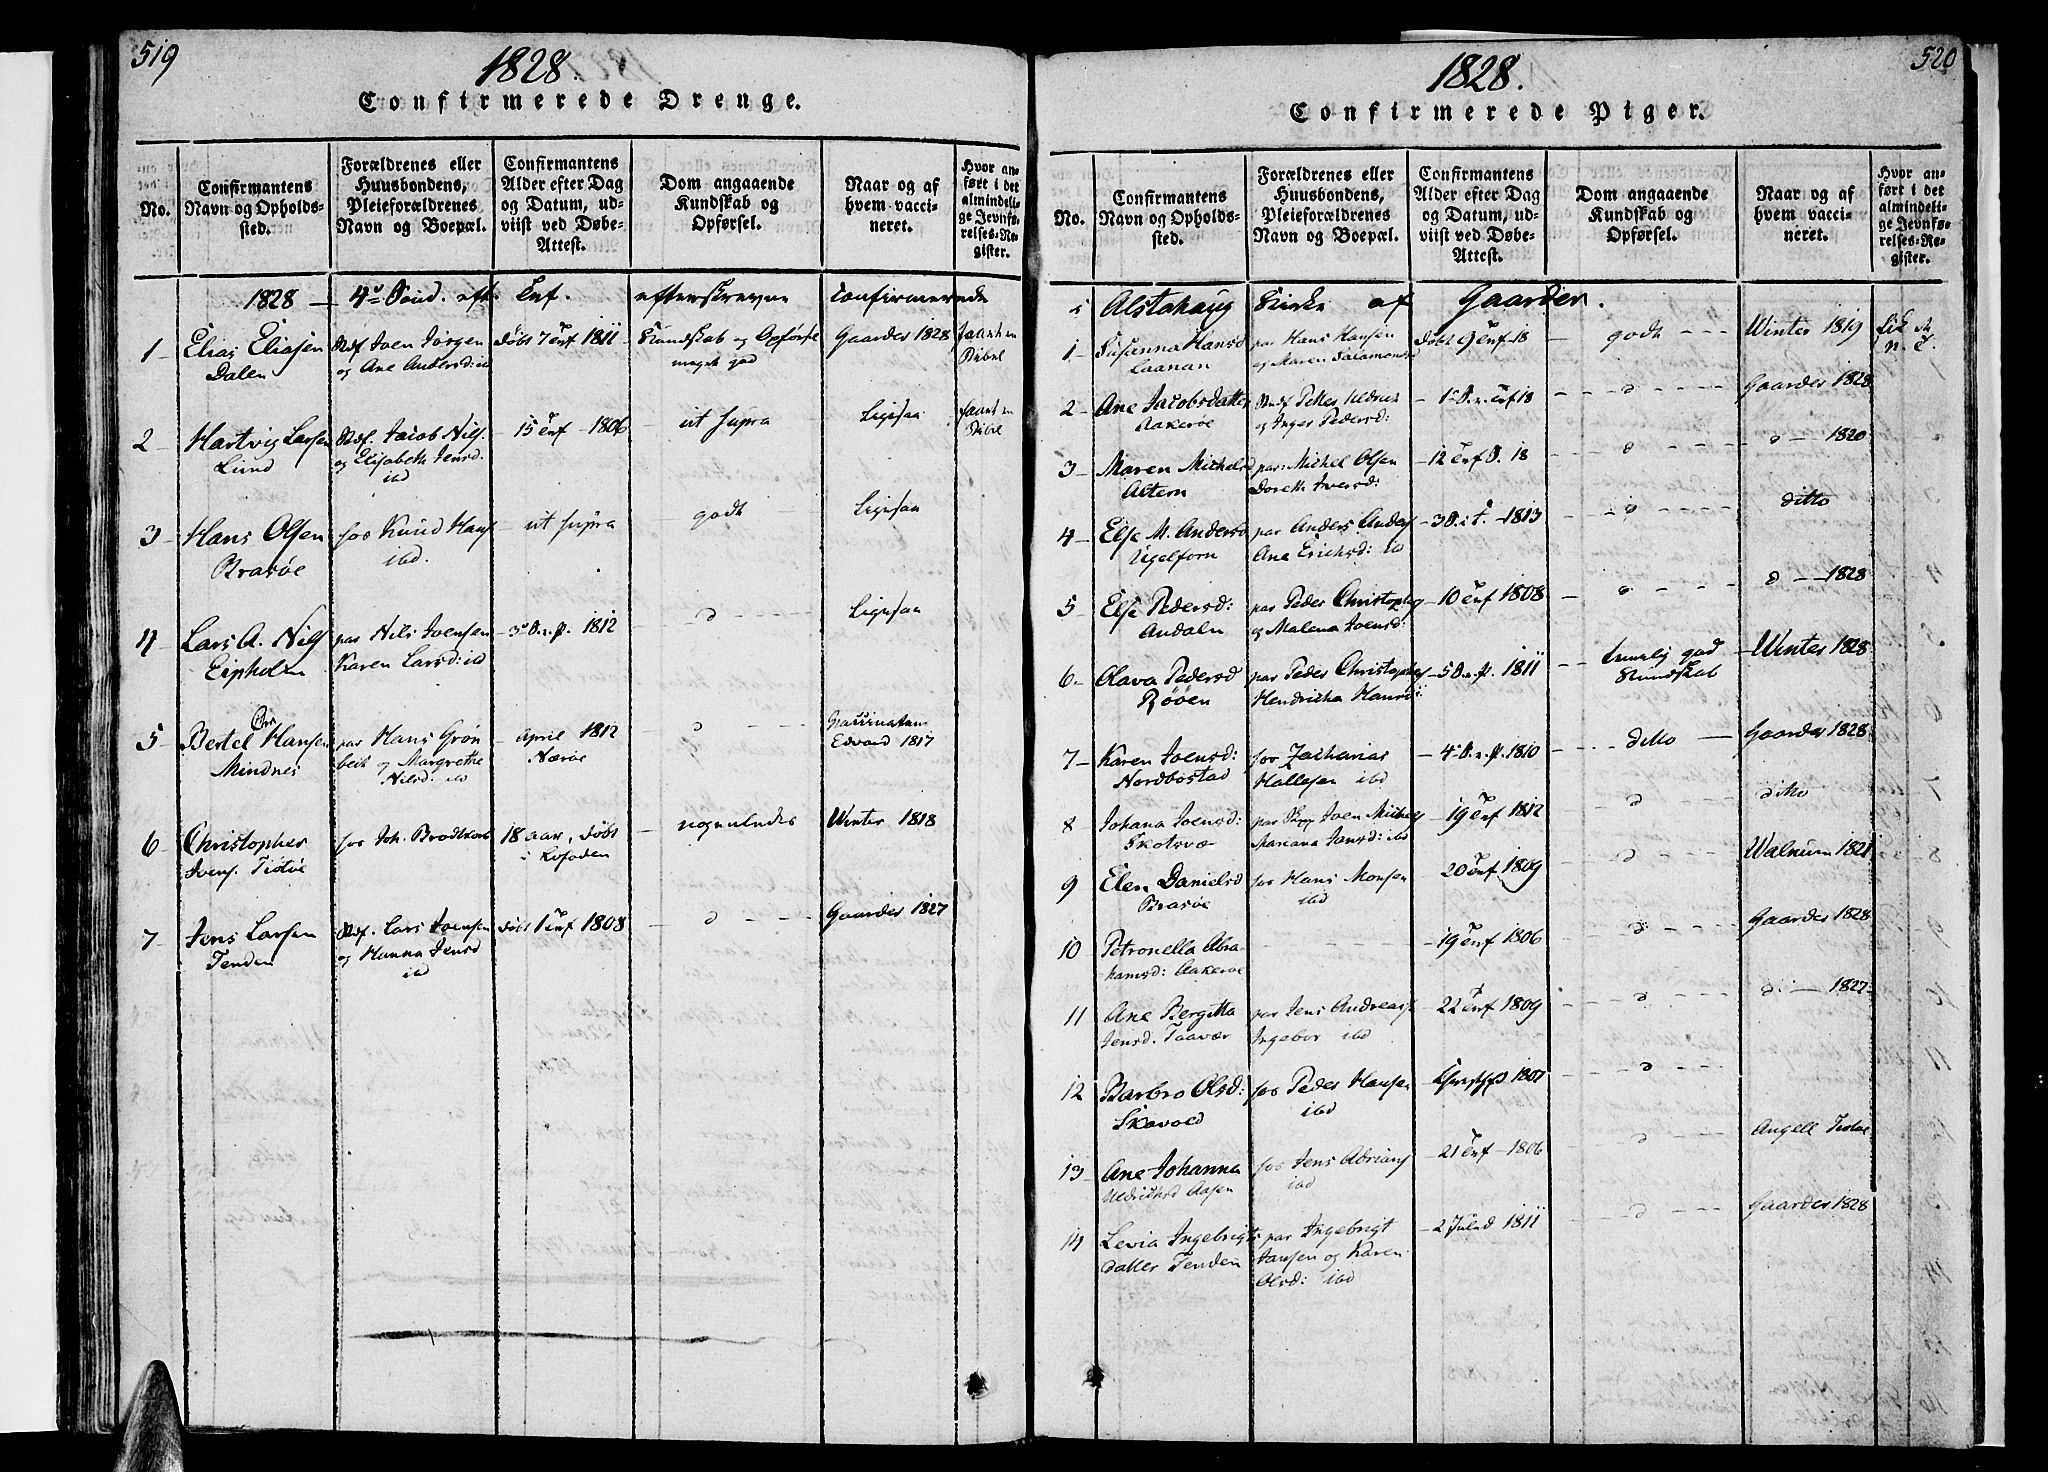 519
1828.
Confirmerede Drenge.
No.
Confirmantens
Navn og Opholds-
sted.
Forældrenes eller
Huusbondens,
Pleieforældrenes
Navn og Boepæl.
Confirmantens
Alder efter Dag
og Datum, ud-
viist ved Døbe-
Attest.
Dom angaaende
Kundskab og
Opførsel.
Naar og af
hvem vacci-
neret.
Hvor an-
ført i det
almindeli-
ge Jevnfø-
relses-Re-
gister.
1828 – efterskrevne Confirmerede
1 Elias Eliasen
Dalen
Joen Jörgen
og Ane Andersd: ibd
döbt 7 1811
Kundskab og Opförsel
meget god
Gaarder 1828
2 Hartvig Larsen
Lund
Jacob Nils.
og Elisabeth Jensd.
ibd
15 1806
ut supra
Ligesaa
3 Hans Olsen
Brasöe
for Knud Hans
ibd.
ut supra
godt
Ligesaa
4 Lars A. Nils
par Nils Joensen
Karen Larsd: ibd
1812
d
Ligesaa
5 Bertel Chr Hansen
Mindnes
par Hans Grön
beck og Margrethe
Nilsd: ibd
April 1812
Næröe
d
Edvard 1817
6 Christopher
Ivers. Tiötöe
for Joh. Brodtkorb
18 aar, döbt
i Lofoden
nogenledes
Winter 1818
7 Jens Larsen
Tenden
Lars Joensen
og Hanna Jensd
ibd
döbt 1 1808
d
Gaarder 1827
520
1828.
Confirmerede Piger.
No.
Confirmantens
Navn og Opholds-
sted.
Forældrenes eller
Huusbondens,
Pleieforældrenes
Navn og Boepæl.
Confirmantens
Alder efter Dag
og Datum, ud-
viist ved Døbe-
Attest.
Dom angaaende
Kundskab og
Opførsel.
Naar og af
hvem vacci-
neret.
Hvor an-
ført i det
almindeli-
ge Jevnfø-
relses-Re-
gister.
i Alstahaug Kirke af Gaarder.
1 Susanna Hansd
Laanan
par Hans Hansen
og Maren Salamonsd
döbt 9 18
godt
Winter 1819
2 Ane Jacobsdatter
Aakeröe
Petter
og Inger Pedersd:
18
d
Gaarder 1828
3 Maren Michelsd
Altern
par: Michel Olsen
Doreth Iversd:
12 18
d
d 1820
4 Else M. Andersd
Ugelforn
par Anders Anders
Ane Erichsd: ib
1813
d
ditto
5 Else Pedersd:
Andaln
par Peder Christophs
og Malena Joensd:
10 1808
d
d 1828
6 Olava Pedersd
Röden
par Peder Christophs
Hendricha Hansd:
1811
temlig god
Kundskab
Winter 1828
7 Karen Joensd:
Nordböstad
for Zacharias
Hallesen ibd
1810
ditto
Gaarder 1828
8 Johana Joensd:
Skotsvæ
par Joen Michels
Mariana Jansd: ibd
19 1812
d
ditto
9 Elen Danielsd
Brasöe
for Hans Monsen
ibd
20 1809
d
Walnum 1821
10 Petronella Abra
hamsd: Aakeröe
19 1806
d
Gaarder 1828
11 Ane Bergitta
Jensd. Taavær
par Jens Andreas
Ingebor ibd
22 1809
d
d 1827
12 Barbro Olsd:
Skavold
for Peder Hansen
ibd
1807
d
13 Ane Johanna
Aasen
for Jens Adrians
ibd
21 1806
d
Angell
14 Levia Ingebrigts
datter Tenden
par Ingebrigt
Jansen og Karen
Olsd: ibd
2 Juled 1811
d
Gaarder 1828